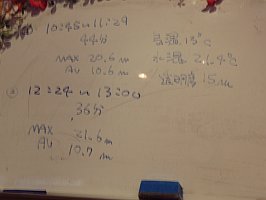 ① 10:45〜11:29
44分
MAX 20.6m
AV 10.6m
気温 13℃
水温 21.4℃
透明度 15m
② 12:24〜13:00
36分
MAX 21.6m
AV 10.7m